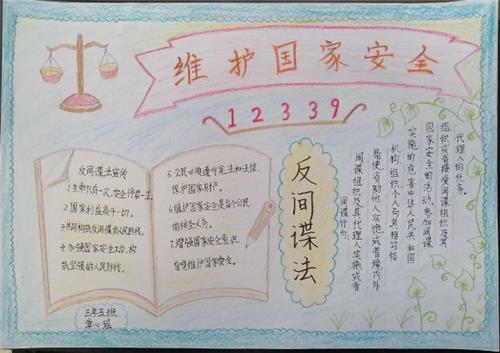 维护国家安全
12339
反间谍法宣传
1.生命只有一次,安全伴君一生.
2.国家利益高于一切.
3.共同构筑反间谍的人民防线.
4.加强国家安全工作,构
筑坚强的人民防线.
5.公民必须遵守宪法和法律,
保护国家财产.
6.维护国家安全是每个公民
的神圣义务.
7.增强国家安全意识,
自觉维护国家安全.
三年五班
章心瑶
反间谍法
代理人的任务.
组织或者接受间谍组织及其
国家安全的活动.参加间谍
实施的危害中华人民共和国
机构.组织个人与其相勾结
是指使资助他人实施或者境内外
间谍组织及其代理人实施或者
间谍行为: